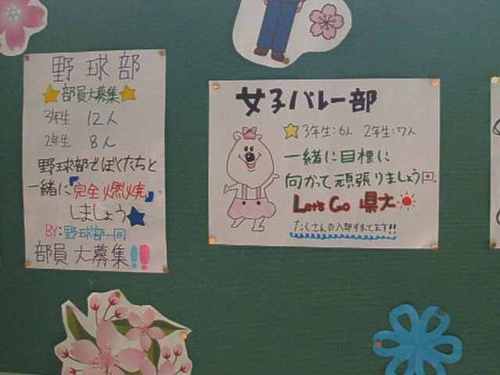 野球部
部員大募集
3年生 12人
2年生 8人
野球部でぼくたちと
一緒に『完全燃焼』
しましょう
BY:野球部一同
部員大募集!!
女子バレー部
3年生:6人 2年生:7人
一緒に目標に
向かって頑張りましょう
Let's Go 県大
たくさんの入部まってます!!